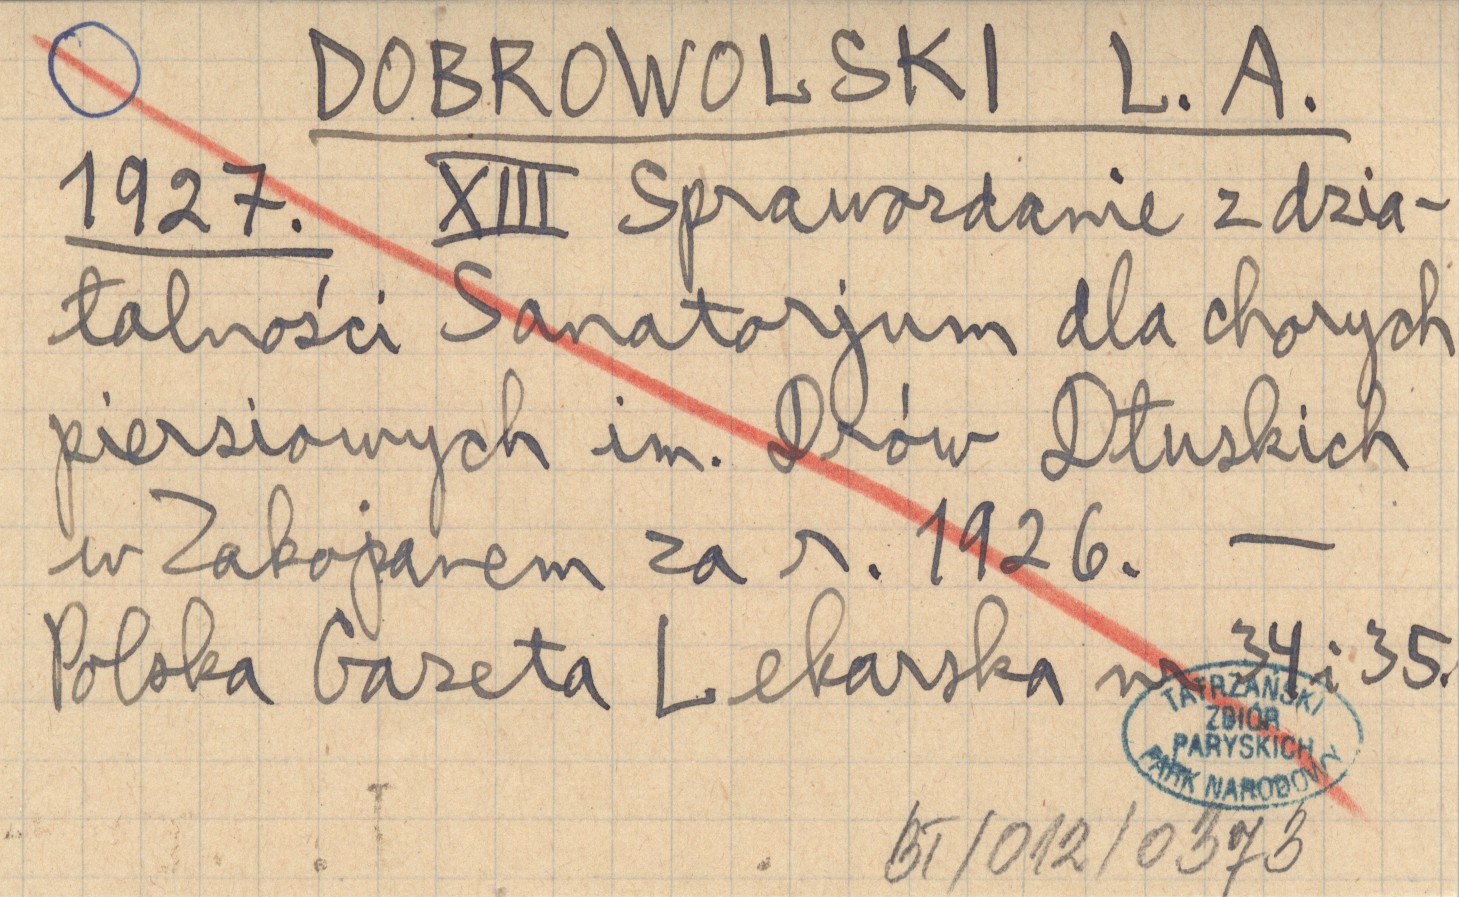 DOBROWOLSKI L. A.
1927. XIII Sprawozdanie z dzia-
łalności Sanatorjum dla chorych
piersiowych im. Drów Dłuskich
w Zakopanem za r. 1926. —
Polska Gazeta Lekarska nr 34 i 35.
TATRZAŃSKI
ZBIÓR
PARYSKICH
PARK NARODOWY
BT/012/0373